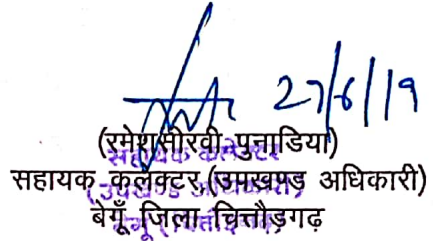 27/6/19
(रमेश सीरवी पुनाडिया)
सहायक कलेक्टर (उपखण्ड अधिकारी)
बेगूँ जिला चित्तौड़गढ़